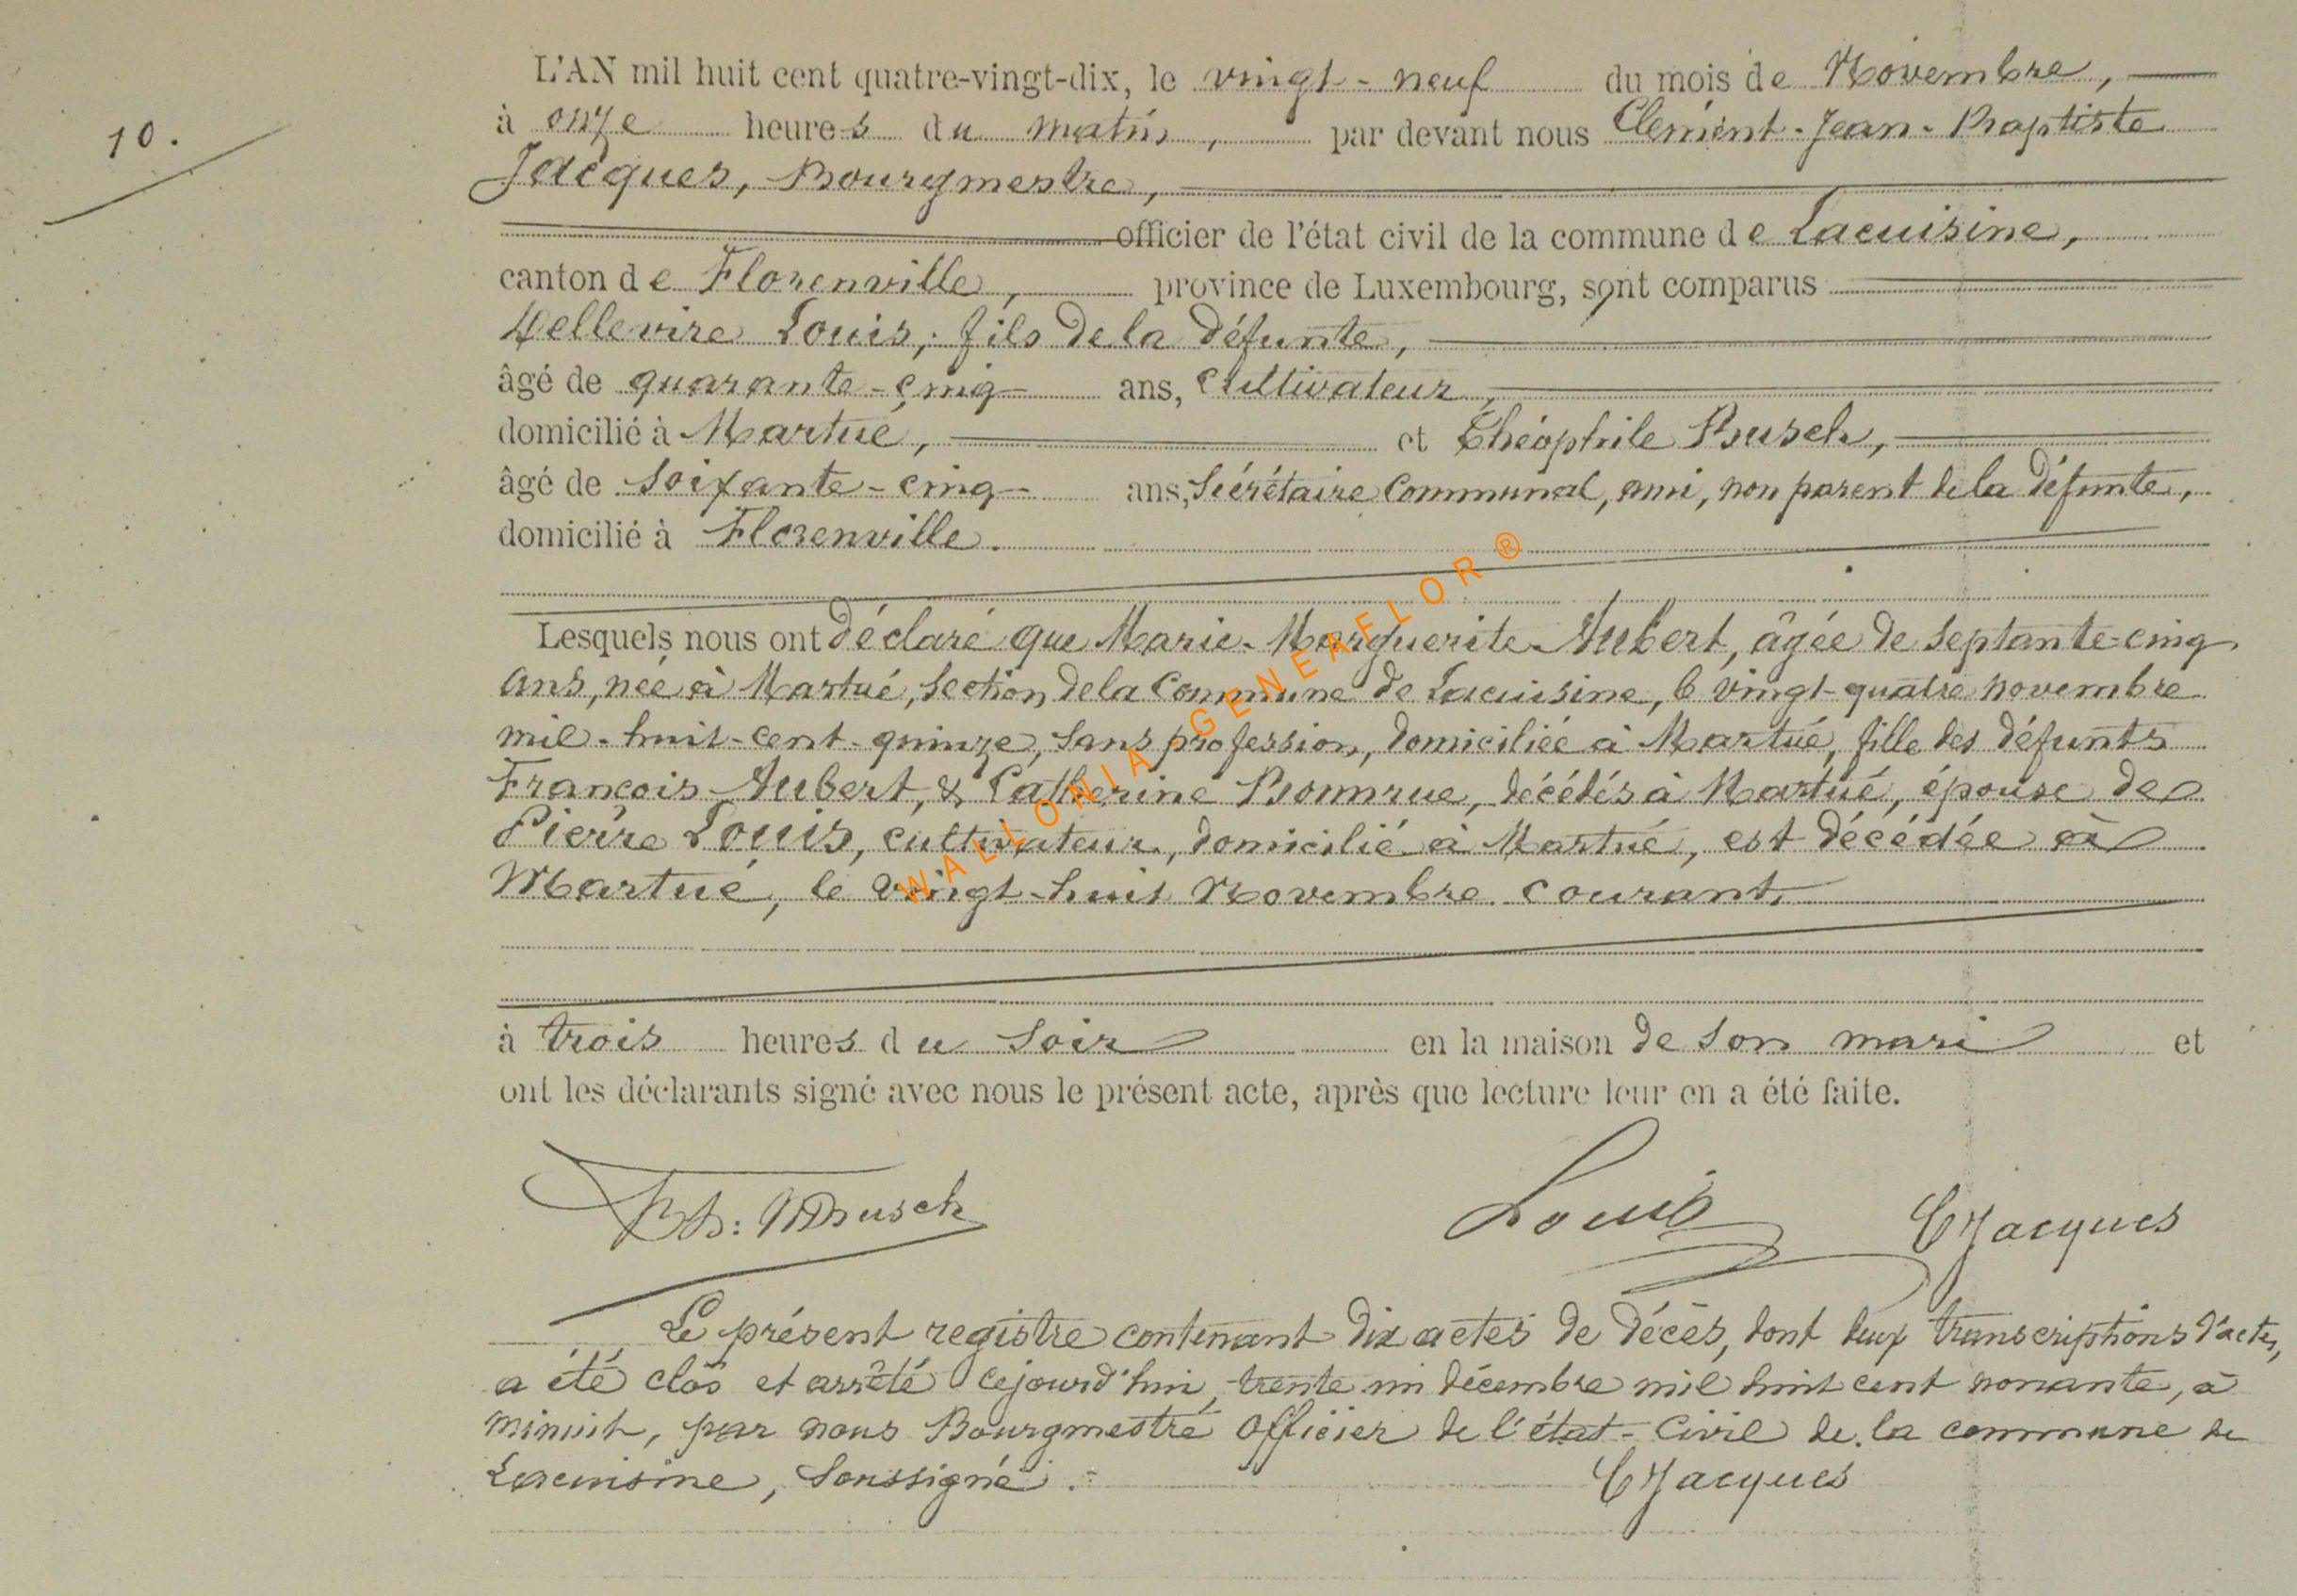 10.
L'AN mil huit cent quatre-vingt-dix, le vingt-neuf du mois de Novembre,
à onze heures du matin, par devant nous Clément-Jean-Baptiste
Jacques, Bourgmestre,
officier de l'état civil de la commune de Lacuisine,
canton de Florenville, province de Luxembourg, sont comparus
Louis, fils de la défunte,
âgé de quarante-cinq ans, Cultivateur,
domicilié à Martué, et Théophile Busch,
âgé de soixante-cinq ans, Sécrétaire Communal, ami, non parent de la défunte,
domicilié à Florenville.
Lesquels nous ont déclaré que Marie-Marguerite Aubert, âgée de septante-cinq
ans, née à Martué, section de la Commune de Lacuisine, le vingt-quatre novembre
mil-huit-cent-quinze, sans profession, domiciliée à Martué, fille des défunts
François Aubert, & Catherine Bonnrue, décédés à Martué, épouse de
Pierre Louis, cultivateur, domicilié à Martué, est décédée à
Martué, le vingt-huit Novembre courant,
WALLONIA-GENEAFLOR ®
à trois heures du soir en la maison de son mari et
ont les déclarants signé avec nous le présent acte, après que lecture leur en a été faite.
Th: Busch Louis CJacques
Le présent registre contenant dix actes de décès, dont deux transcriptions d'actes,
a été clos et arrêté cejourd'hui, trente un décembre mil huit cent nonante, à
minuit, par nous Bourgmestre officier de l'état-Civil de la commune de
Lacuisine, soussigné.
CJacques